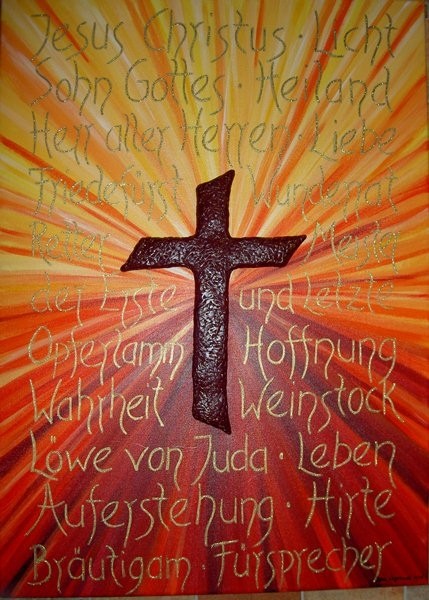 Jesus Christus · Licht
Sohn Gottes · Heiland
Herr aller Herren · Liebe
Friedefürst Wunderrat
Retter Meister
der Erste und Letzte
Opferlamm Hoffnung
Wahrheit Weinstock
Löwe von Juda · Leben
Auferstehung · Hirte
Bräutigam · Fürsprecher